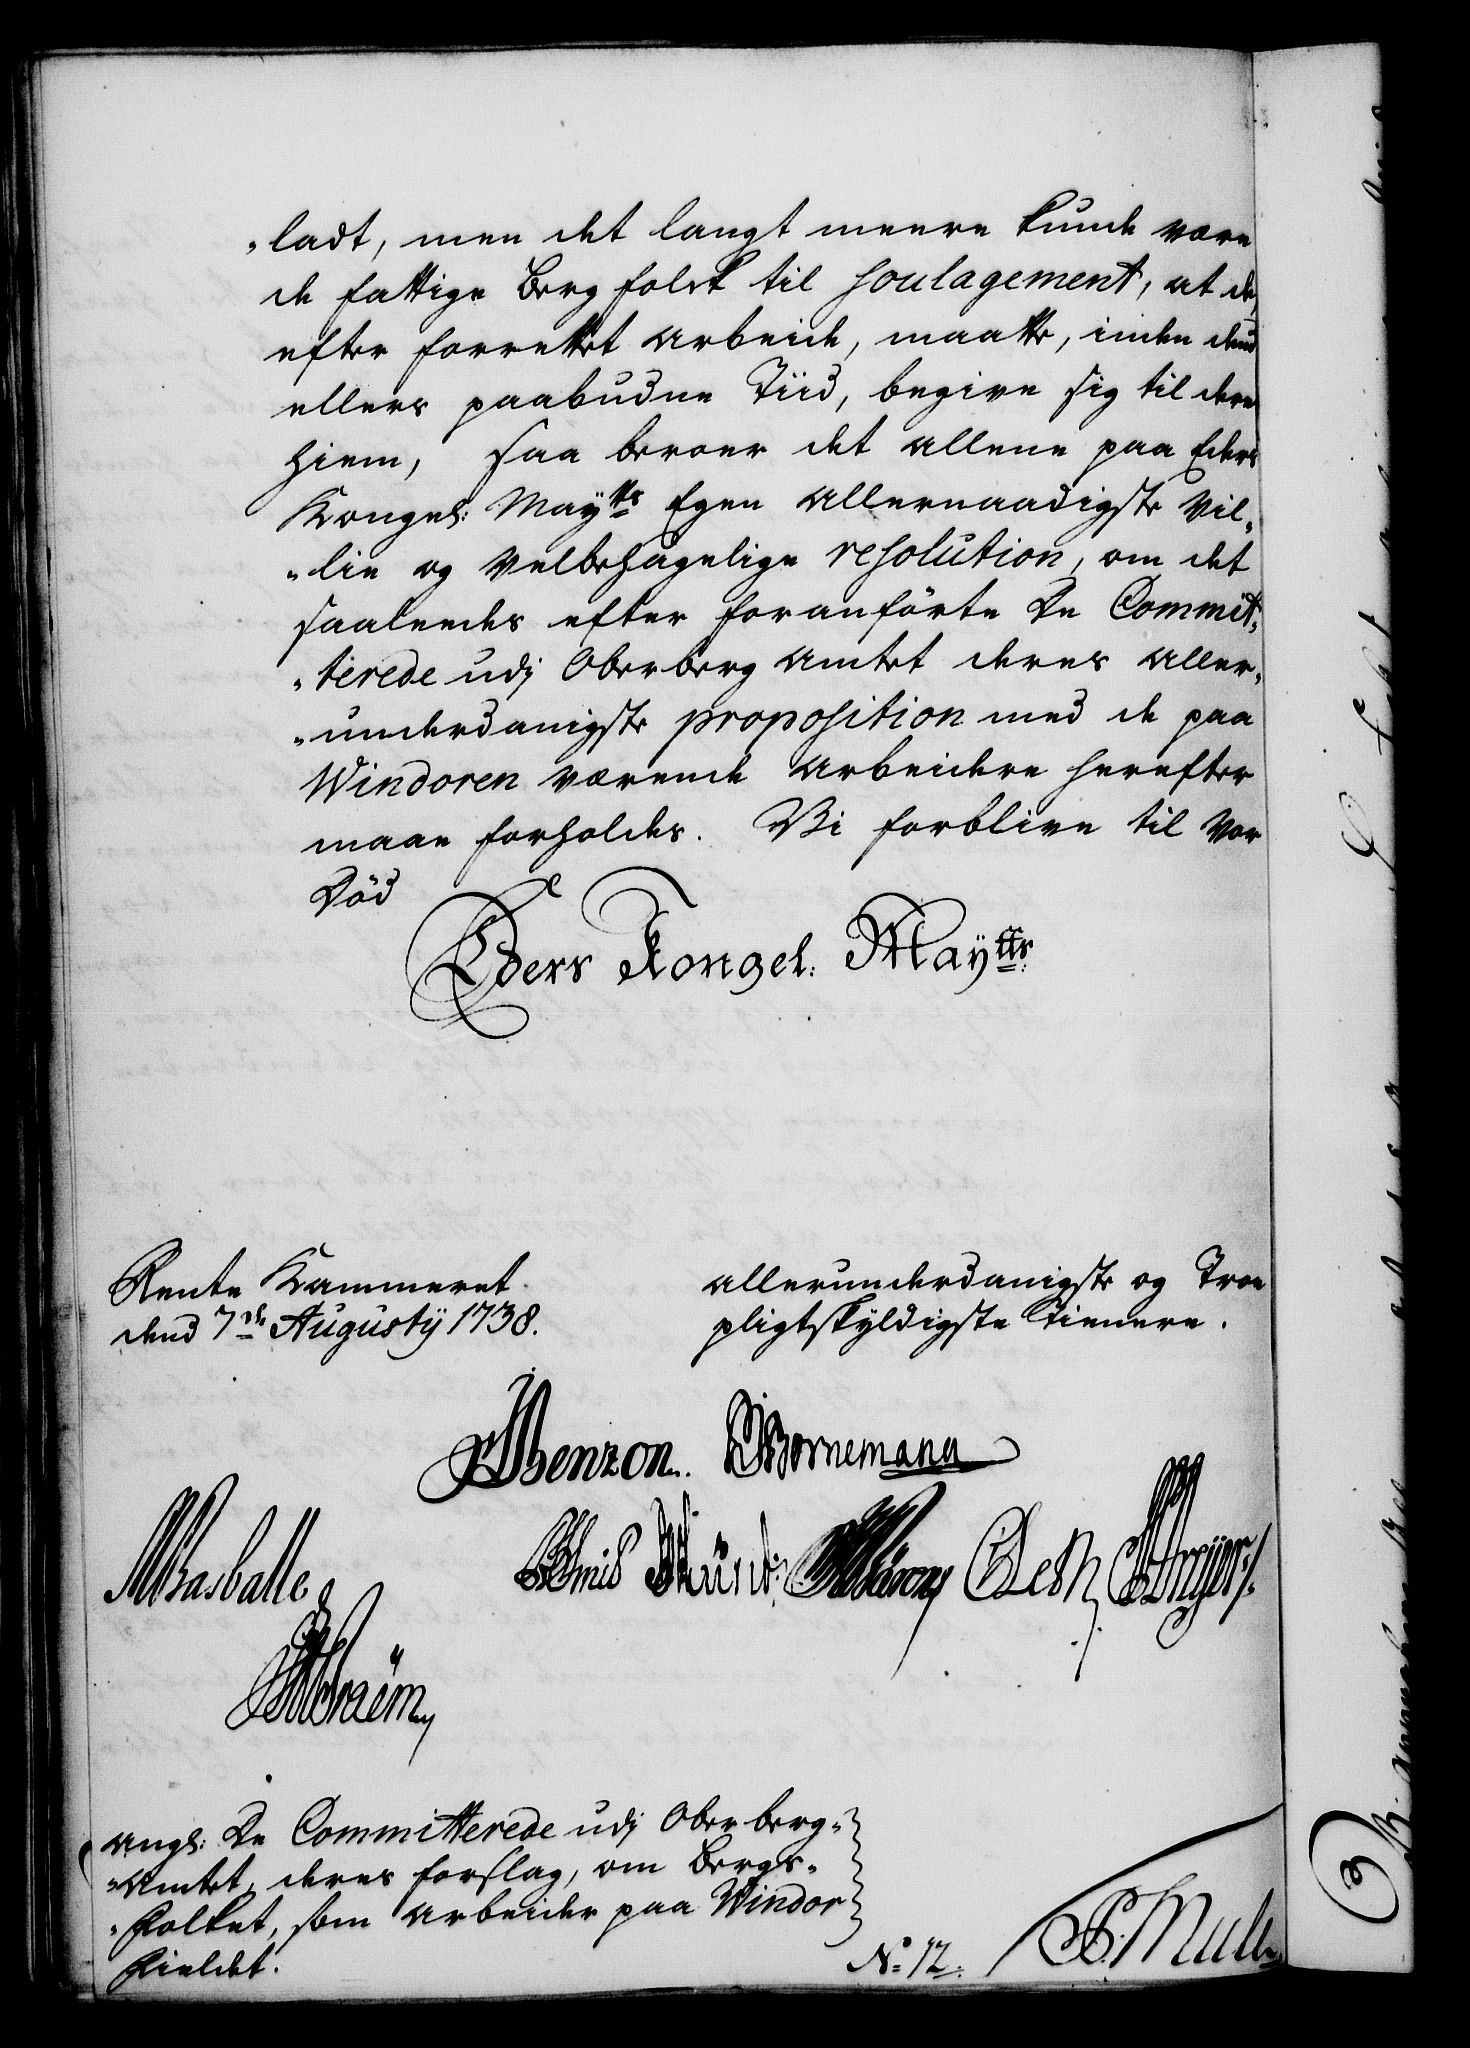 "ladt, men det langt meere kunde være
de fattige Berg folck til soulagement, at de,
efter forrettet arbeide, maatte, inden dend
ellers paabudne Tiid, begive sig til deres
hiem, saa beroer det allene paa Eders
Kongel: Maytts Egen allernaadigste Vil„
„lie og Velbehagelige resolution, om det
saaleedes efter foranförte De Commit„
„terede udj Oberberg Amtet deres aller„
„underdanigste proposition med de paa
Windoren værende arbeidere herefter
maae forholdes. Vi forblive til Vor
Död
Eders Kongel: Maytts:
Rente Kammeret
dend 7de Augustij 1738.
allerunderdanigste og Troe
pligtskyldigste Tienere.
Benzon. Bornemann
Basballe
angl: De Committerede udj Oberberg„
„Amtet, deres forslag, om Bergs„
„Folket, som arbeider paa Windor
Fieldet.
No. 12.